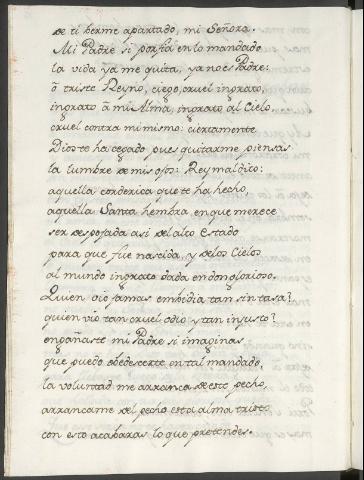 de ti herme apartado, mi Señora.
Mi Padre si porfia en lo mandado
la vida ya me quita, ya no es Padre:
ò triste Reyno, ciego, cruel ingrato,
ingrato à mi Alma, ingrato al Cielo
cruel contra mi mismo: ciertamente
Dios te ha cegado pues quitarme piensas
la lumbre de mis ojos: Rey maldito:
aquella corderica que te ha hecho,
aquella Santa hembra en que merece
ser desposada asi del alto Estado
para que fue nascida, y de los Cielos
al mundo ingrato dada en don glorioso.
Quien vio jamas embidia tan sin tasa?
quien vio tan cruel odio y tan injusto?
engañaste mi Padre si imaginas
que puedo obedescerte en tal mandado,
la voluntad me arranca de este pecho,
arrancame del pecho esta alma triste
con esto acabaras lo que pretendes.